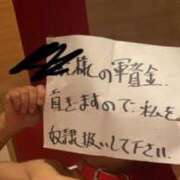 様の軍資金
貢ぎますので私を
奴隷扱いして下さい